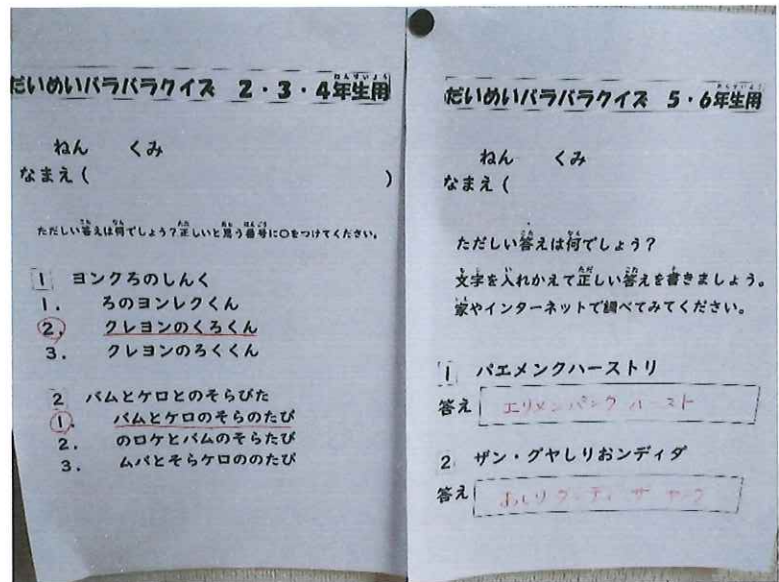 だいめいバラバラクイズ 2・3・4年生用
ねん くみ
なまえ( )
ただしい答えは何でしょう?正しいと思う番号に○をつけてください。
1 ヨンクろのしんく
1. ろのヨンレクくん
2. クレヨンのくろくん
3. クレヨンのろくくん
2 バムとケロとのそらびた
1. バムとケロのそらのたび
2. のロケとバムのそらたび
3. ムバとそらケロののたび
だいめいバラバラクイズ 5・6年生用
ねん くみ
なまえ(
ただしい答えは何でしょう?
文字を入れかえて正しい答えを書きましょう。
家やインターネットで調べてみてください。
1 パエメンクハーストリ
答え エリメンパンク ハースト
2 ザン・グヤしりおンディダ
答え おしり